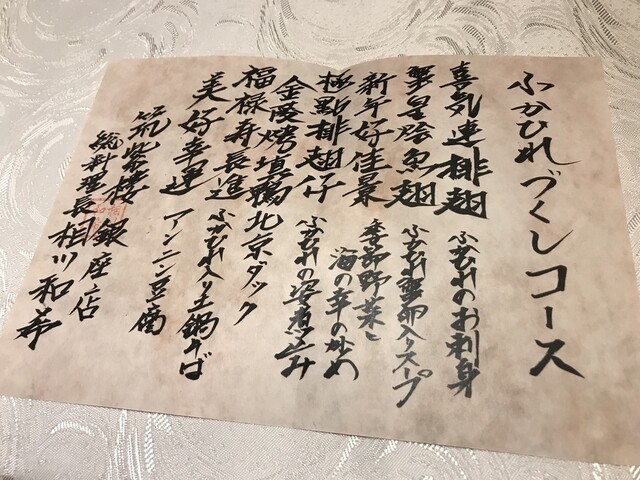 ふかひれづくしコース
喜気連排翅 ふかひれのお刺身
蟹皇燴魚翅 ふかひれ蟹卵入りスープ
新年好佳景 季節野菜と海の幸の炒め
極點排翅仔 ふかひれの姿煮込み
金陵烤填鴨 北京ダック
福禄寿長進 ふかひれ入り土鍋そば
美好幸運 アンニン豆腐
筑紫楼 銀座店
総料理長 相川和